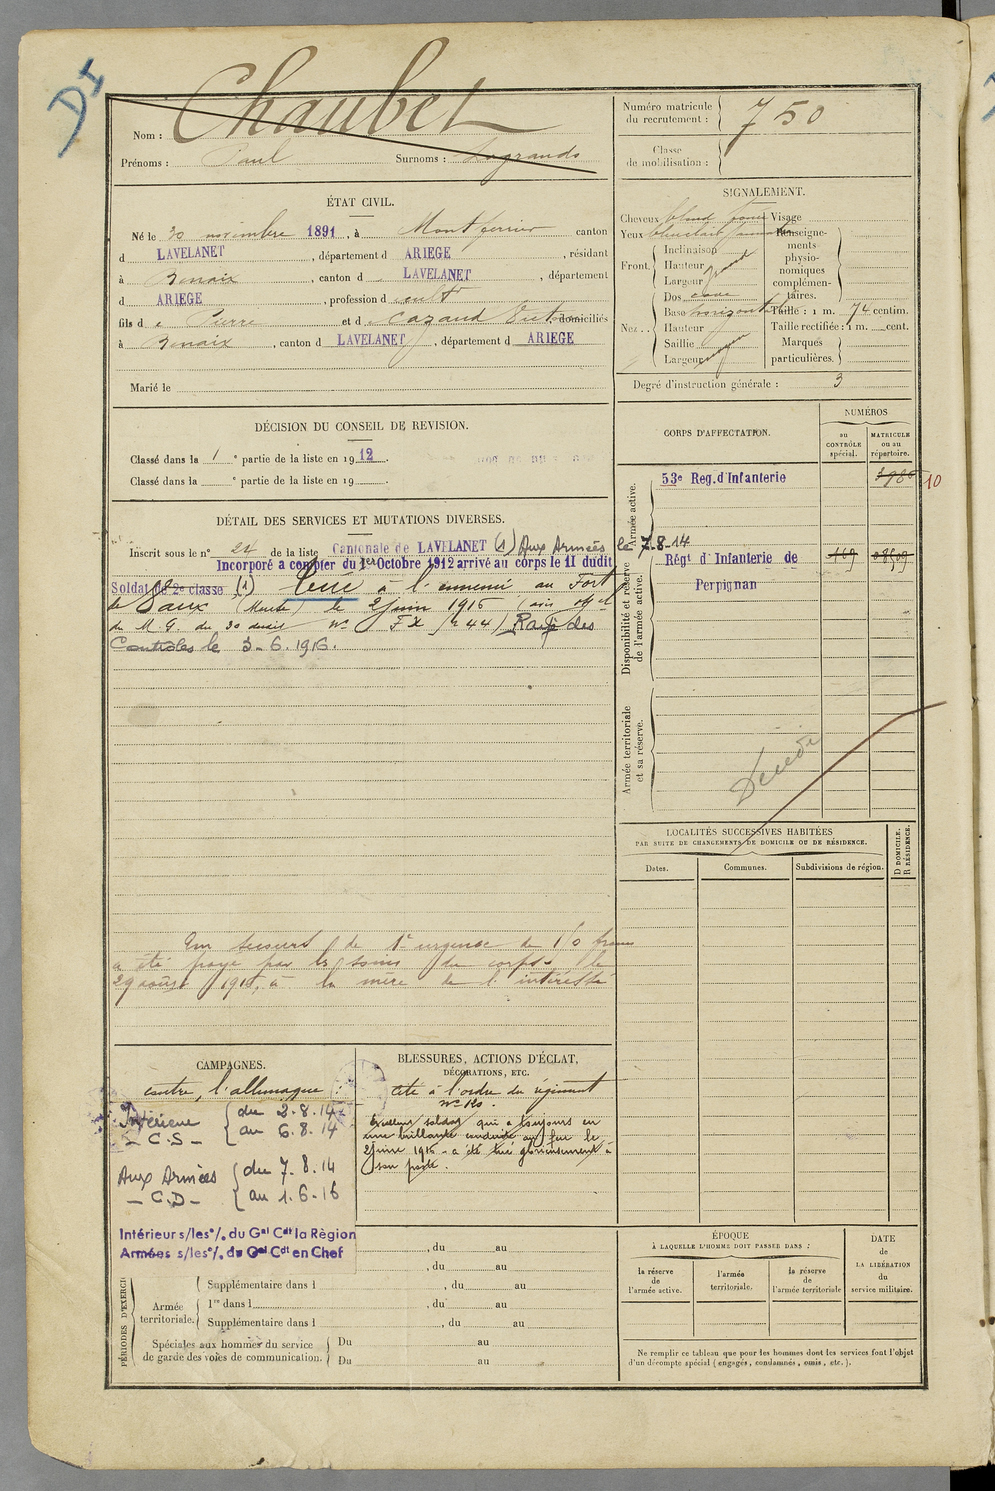 DI
Nom : Chaubet
Prénoms : Paul Surnoms : Lagrands
Numéro matricule du recrutement : 750
Classe de mobilisation :
ÉTAT CIVIL.
Né le 30 novembre 1891, à Montferrier canton
d LAVELANET, département d ARIEGE, résidant
à Benaix, canton d LAVELANET, département
d ARIEGE, profession d cultr
fils de Pierre et de Cazaud domiciliés
à Benaix, canton d LAVELANET, département d ARIEGE
Marié le
SIGNALEMENT.
Cheveux blond foncé Visage
Yeux
Front. Inclinaison
Hauteur grand
Largeur
Nez .. Dos cave
Base horizontale
Hauteur
Saillie
Largeur moyen
Renseigne-
ments
physio-
nomiques
complémen-
taires.
Taille : 1 m. 74 centim.
Taille rectifiée : 1 m. cent.
Marques
particulières.
Degré d'instruction générale : 3
DÉCISION DU CONSEIL DE REVISION.
Classé dans la 1e partie de la liste en 1912.
Classé dans la e partie de la liste en 19 .
DÉTAIL DES SERVICES ET MUTATIONS DIVERSES.
Inscrit sous le n° 24 de la liste Cantonale de LAVELANET (1) Aux Armées le 7-8-14
Incorporé à compter du 1er Octobre 1912 arrivé au corps le 11 dudit
Soldat de 2e classe (1) tué à l'ennemi au Fort
de Vaux (Meuse) le 2 juin 1916 (avis offel
du M. G. du 30 N° FX 44) Rayé des
Contrôles le 3-6.1916.
Un secours de 1e urgence de 150 francs
a été payé par les soins du corps le
29 août 1916, à la mère de l'intéressé
CORPS D'AFFECTATION.
NUMÉROS
au CONTRÔLE spécial.
MATRICULE ou au répertoire.
Armée active.
53e Reg. d'Infanterie
10
Disponibilité et réserve de l'armée active.
Régt d'Infanterie de
Perpignan
Armée territoriale et sa réserve.
Décédé
LOCALITÉS SUCCESSIVES HABITÉES
PAR SUITE DE CHANGEMENTS DE DOMICILE OU DE RÉSIDENCE.
Dates. Communes. Subdivisions de région. D DOMICILE. R RÉSIDENCE.
CAMPAGNES.
contre l'allemagne
Intérieure du 2.8.14
- C.S - au 6.8.14
Aux Armées du 7.8.14
- C.D - au 1.6-16
Intérieur s/les o/. du Gal Cdt la Règion
Armées s/les o/. du Gal Cdt en Chef
BLESSURES, ACTIONS D'ÉCLAT,
DÉCORATIONS, ETC.
Cité à l'ordre du régiment
n° 120.
Excellent soldat qui a toujours eu
une brillante conduite au feu le
2 juin 1916 - a été tué glorieusement à
son poste.
, du au
, du au
PÉRIODES D'EXERCI
Armée territoriale.
Supplémentaire dans l , du au
1re dans l , du au
Supplémentaire dans l , du au
Spéciales aux hommes du service
de garde des voies de communication.
Du au
Du au
ÉPOQUE
À LAQUELLE L'HOMME DOIT PASSER DANS :
la réserve de l'armée active.
l'armée territoriale.
la réserve de l'armée territoriale
DATE
de
LA LIBÉRATION
du
service militaire.
Ne remplir ce tableau que pour les hommes dont les services font l'objet
d'un décompte spécial (engagés, condamnés, omis, etc.).